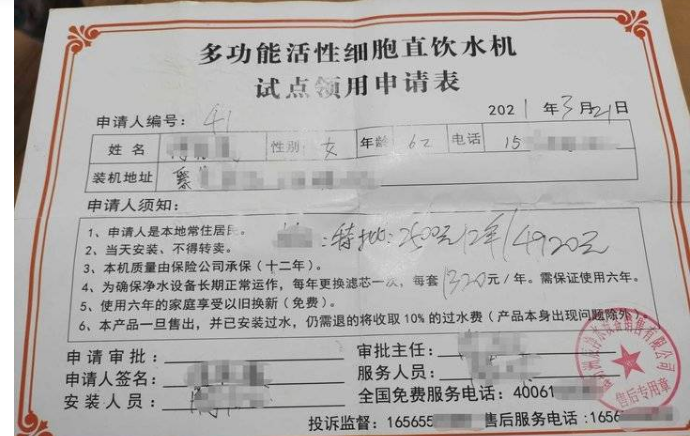 多功能活性细胞直饮水机
试点领用申请表
申请人编号: 41 2021 年 3 月 21 日
姓 名 性别 女 年龄 62 电话 15
装机地址 襄
申请人须知:
1、申请人是本地常住居民。
2、当天安装、不得转卖。
:特批:2500元/2年/4920元
3、本机质量由保险公司承保(十二年)。
4、为确保净水设备长期正常运作,每年更换滤芯一次,每套1320元/年。需保证使用六年。
5、使用六年的家庭享受以旧换新(免费)。
6、本产品一旦售出,并已安装过水,仍需退的将收取 10% 的过水费(产品本身出现问题除外)
申请审批: 审批主任:
申请人签名: 服务人员:
安装人员: 全国免费服务电话: 40061
投诉监督: 16565 售后服务电话:165
售后专用章